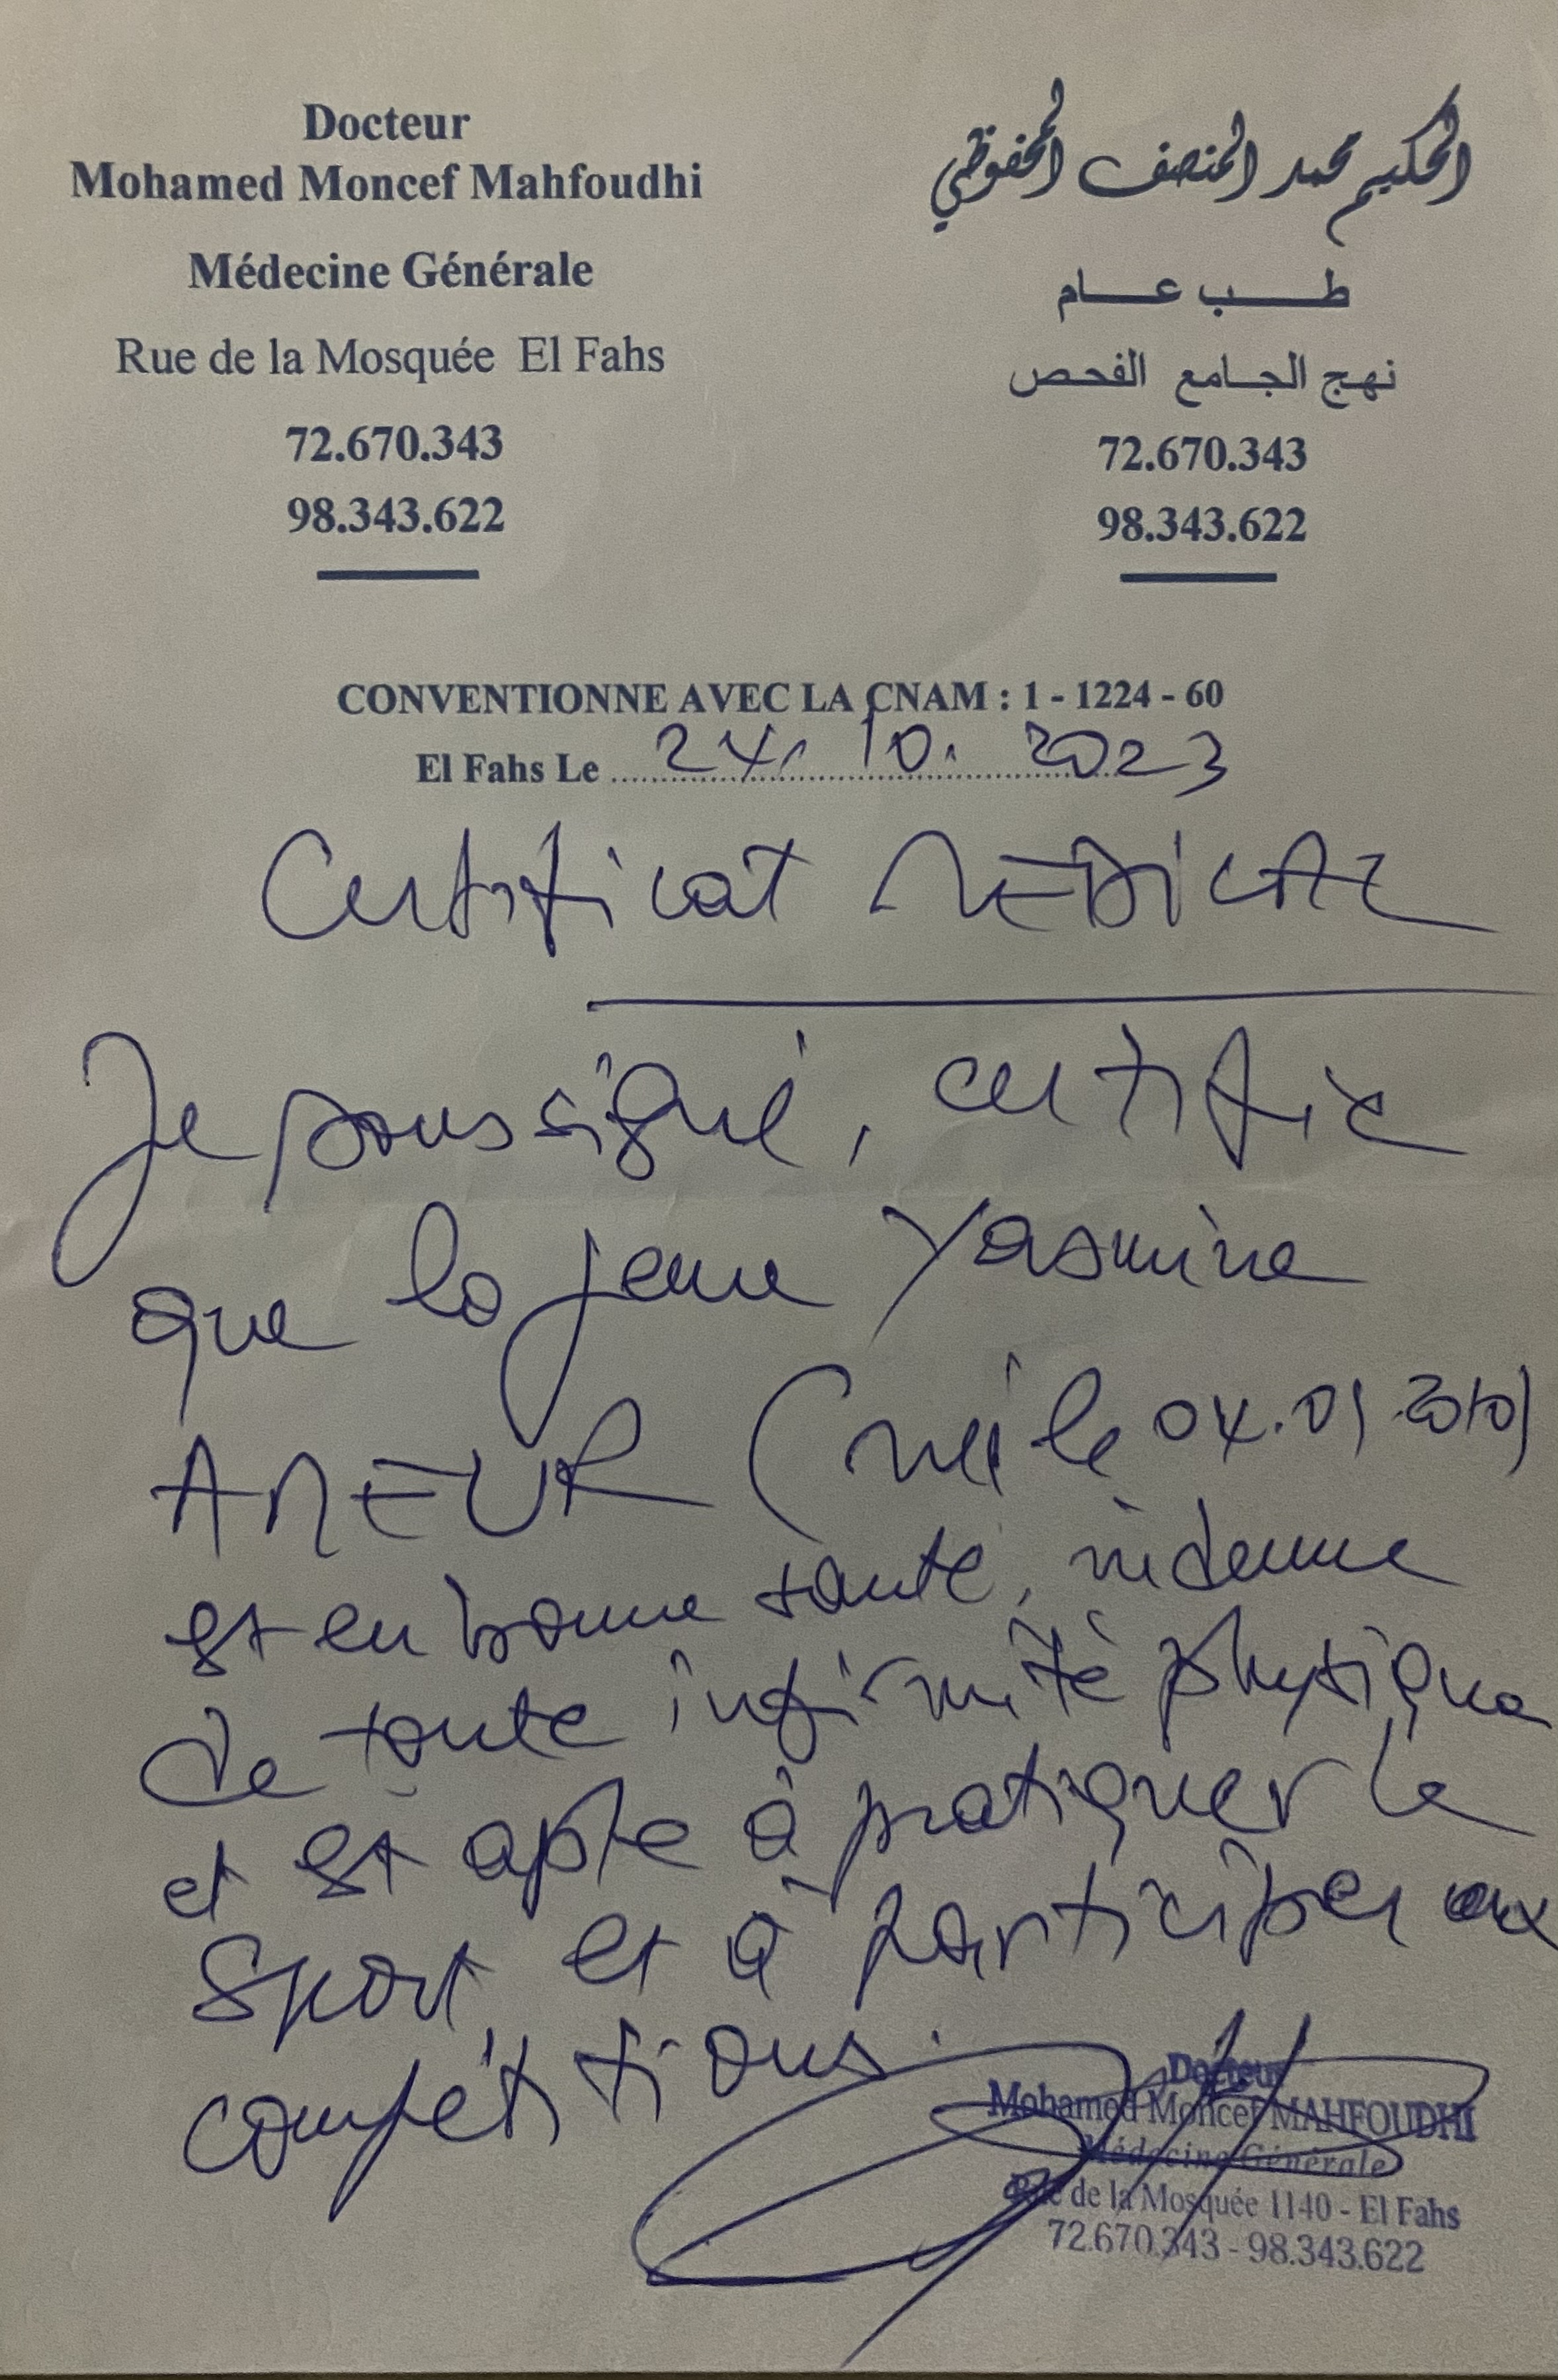 Docteur
Mohamed Moncef Mahfoudhi
Médecine Générale
Rue de la Mosquée El Fahs
72.670.343
98.343.622
الحكيم محمد المنصف المحفوظي
طب عام
نهج الجامع الفحص
72.670.343
98.343.622
CONVENTIONNE AVEC LA CNAM : 1 - 1224 - 60
El Fahs Le 24. 10. 2023
Certificat MEDICAL
Je soussigné, certifie
que la jeune Yasmine
AMEUR (née le 04.01.2010)
est en bonne santé, indemne
de toute infirmité physique
et est apte à pratiquer le
sport et à participer aux
compétitions.
Docteur
Mohamed Moncef MAHFOUDHI
Médecine Générale
Rue de la Mosquée 1140 - El Fahs
72.670.343 - 98.343.622